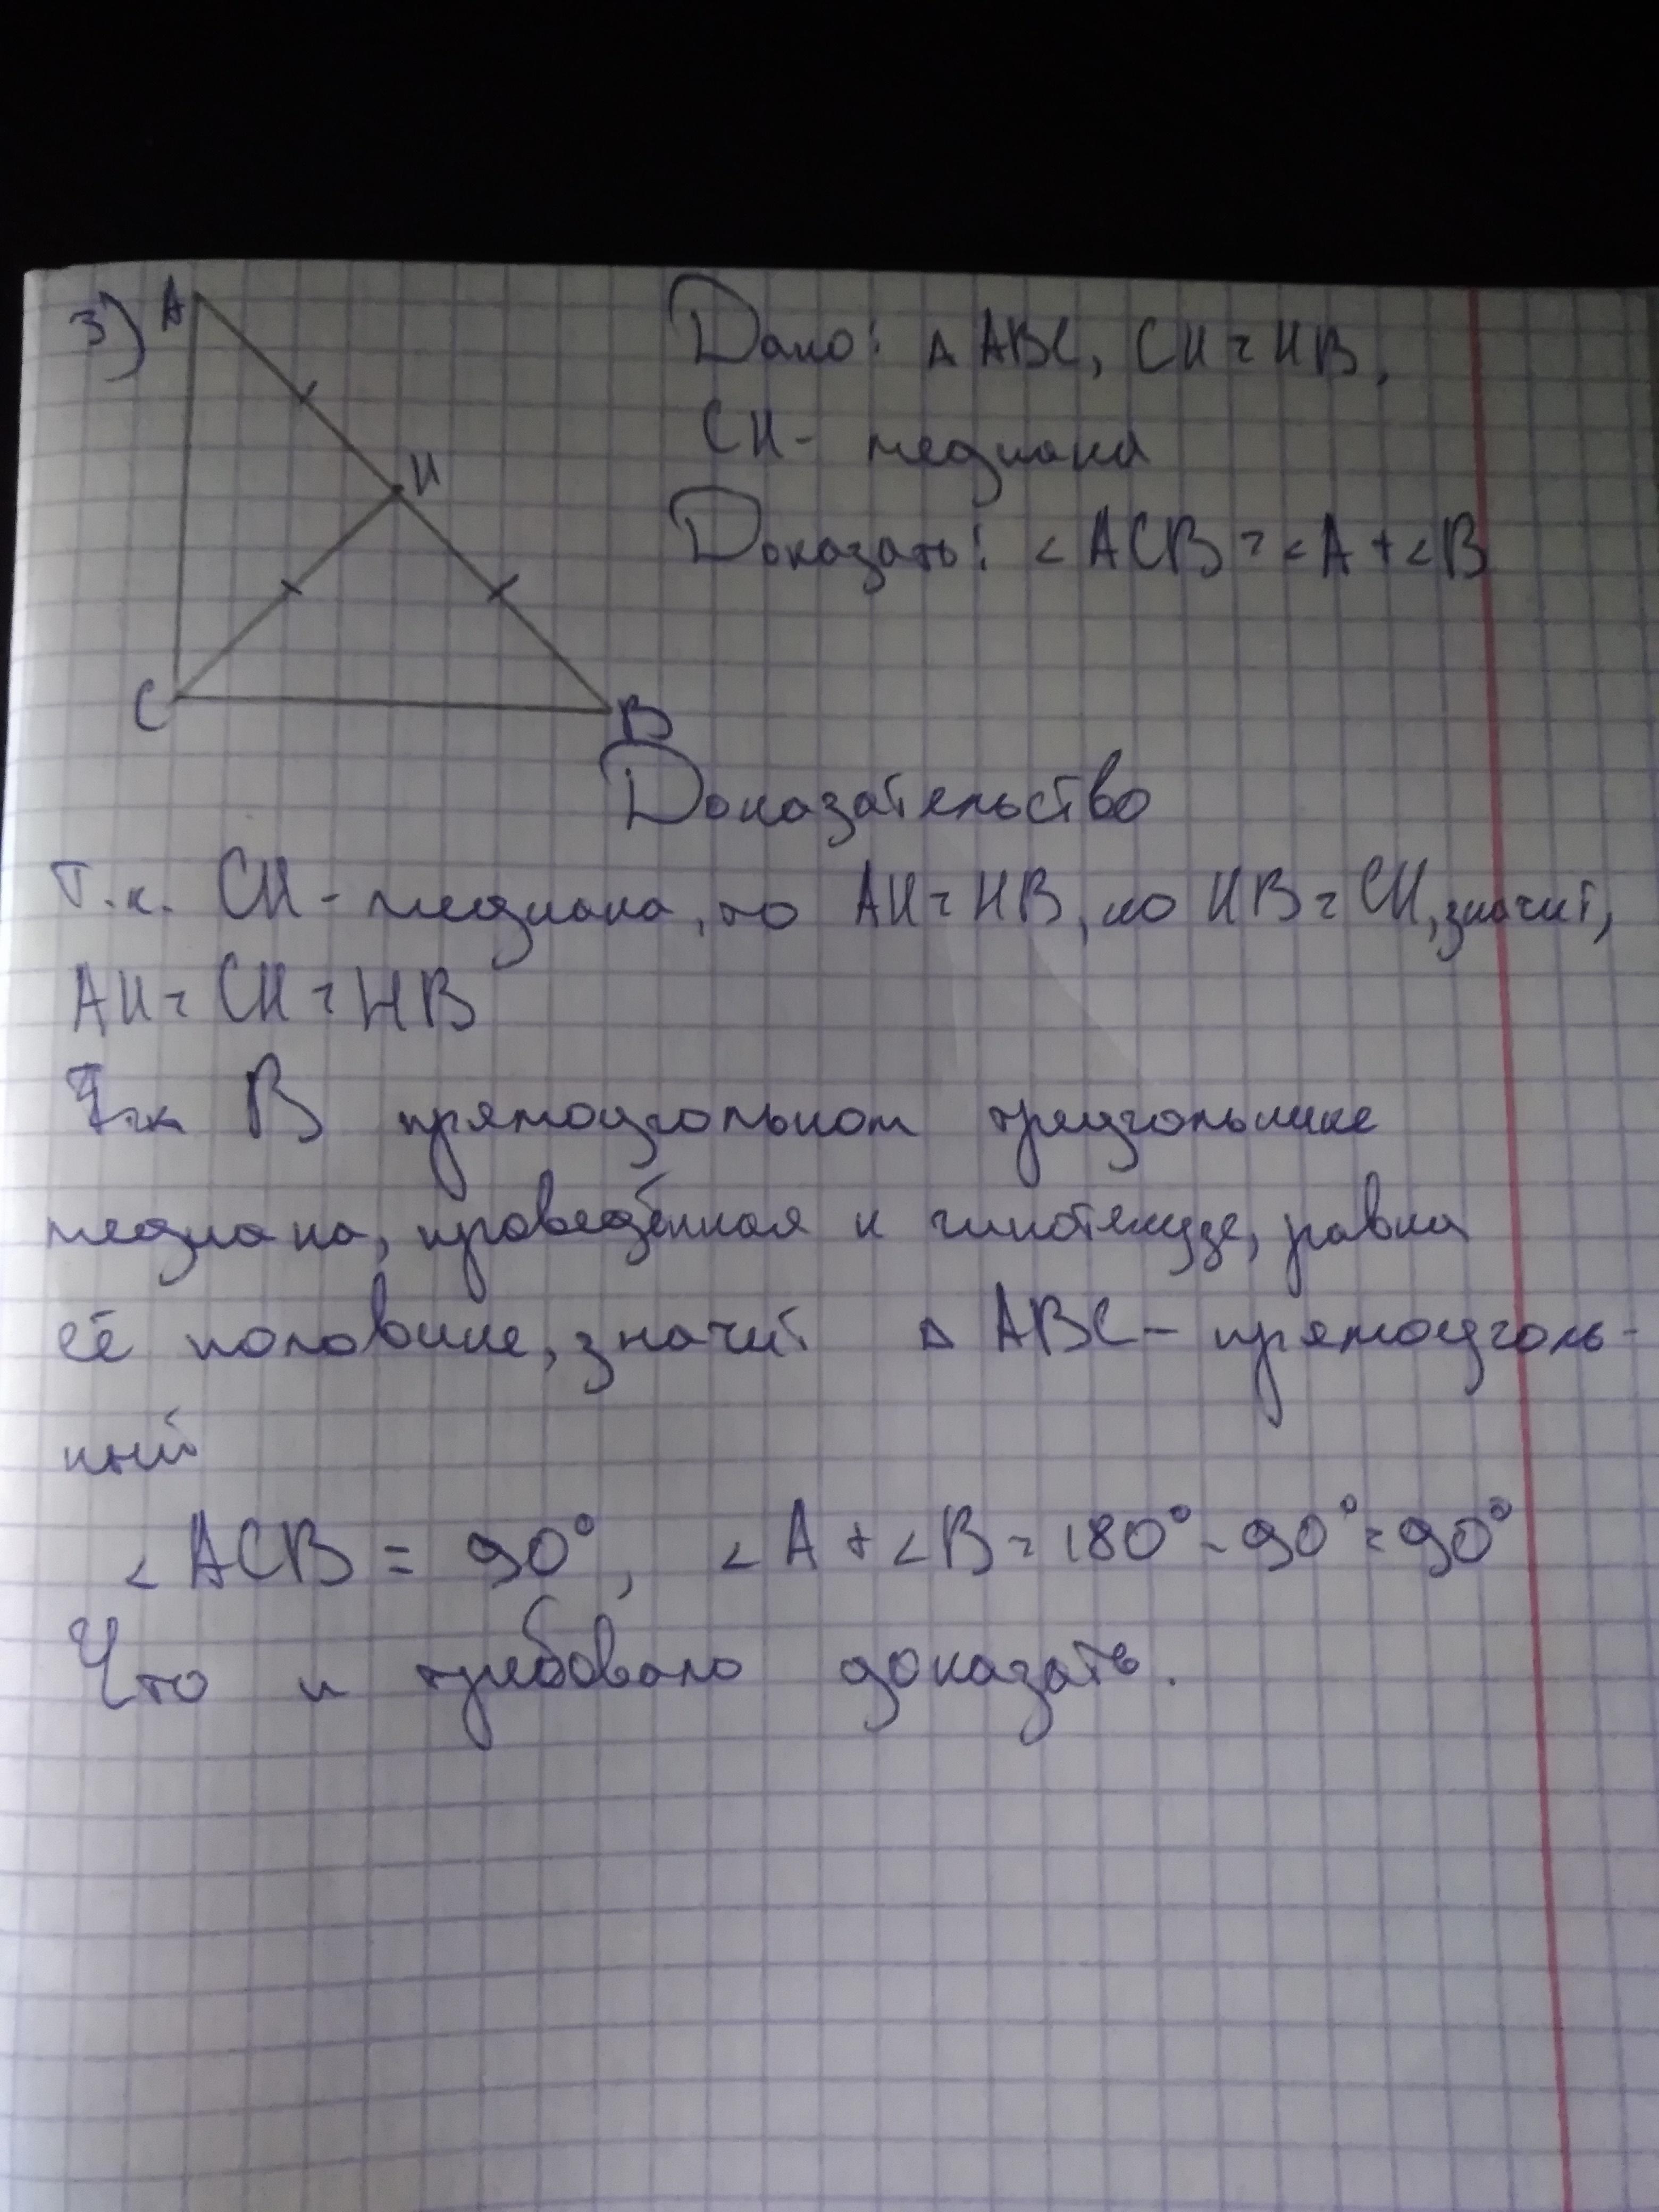 3) A
Дано: △ ABC, CH = HB,
CH - медиана
H
Доказать: ∠ ACB = ∠A + ∠B
C
B
Доказательство
Т.к. CH - медиана, то AH = HB, но HB = CH, значит,
AH = CH = HB
В прямоугольном треугольнике
медиана, проведённая к гипотенузе, равна
её половине, значит △ ABC - прямоуголь-
ный
∠ ACB = 90°, ∠ A + ∠B = 180° - 90° = 90°
Что и требовало доказать.